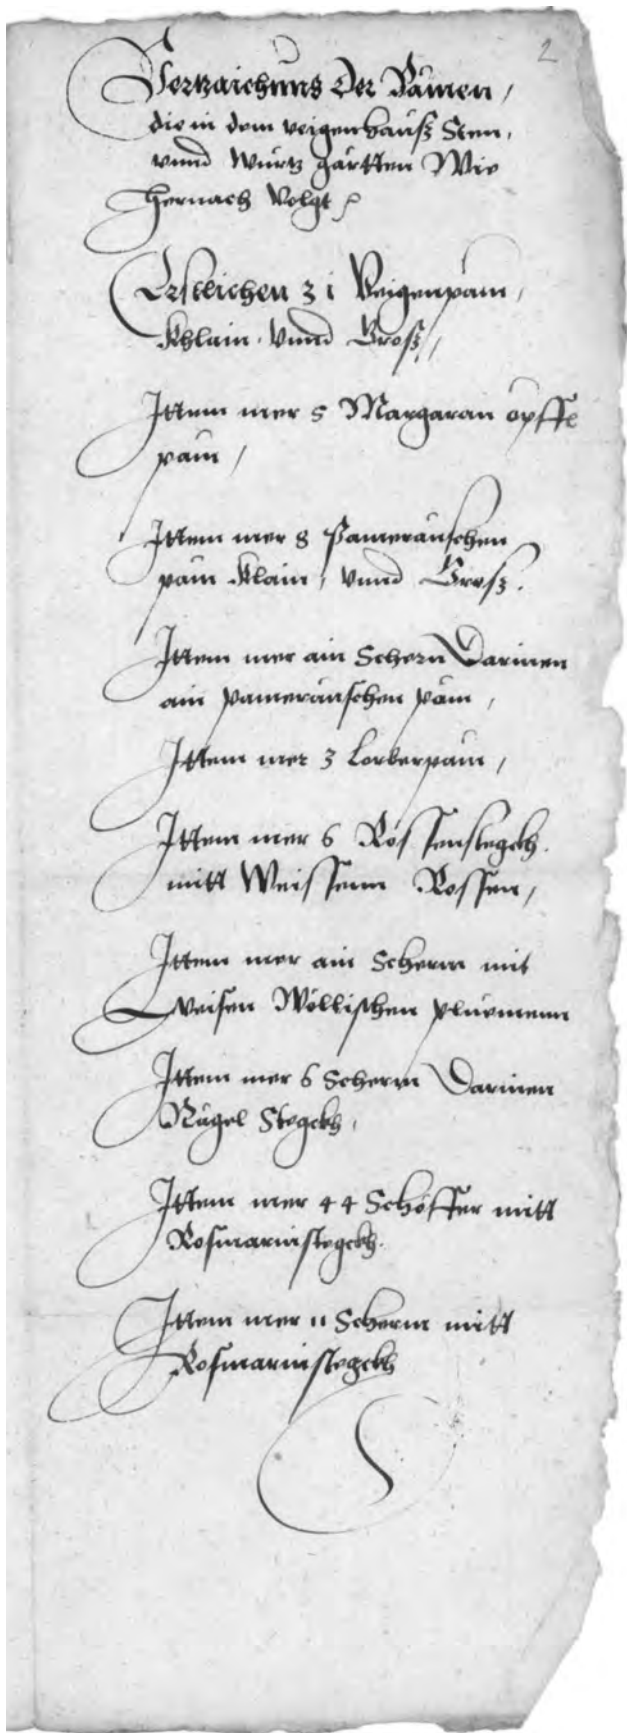 2
Vertzaichnus Der Pämen,
die in dem veigenhauß Sten,
vnnd Wurtz gartten Wie
hernach Volgt
Erstlichen 31 Veigenpäm,
Khlain Vnnd Groß,
Ittem mer 5 Margaran öpffl
päm,
Ittem mer 8 Pameräntschen
päm Klain, Vnnd Groß.
Ittem mer ain Schern Darinen
ain pameräntschen päm,
Ittem mer 3 Lorberpäm,
Ittem mer 6 Rossenstegckh
mitt Weissenn Rossen,
Ittem mer ain Scherm mit
Weisen Wöllischen pluemenn
Ittem mer 6 Scherm Darinen
Nägel Stegckh,
Ittem mer 44 Schöffer mitt
Rosmarinstegckh.
Ittem mer 11 Scherm mitt
Rosmarinstegckh